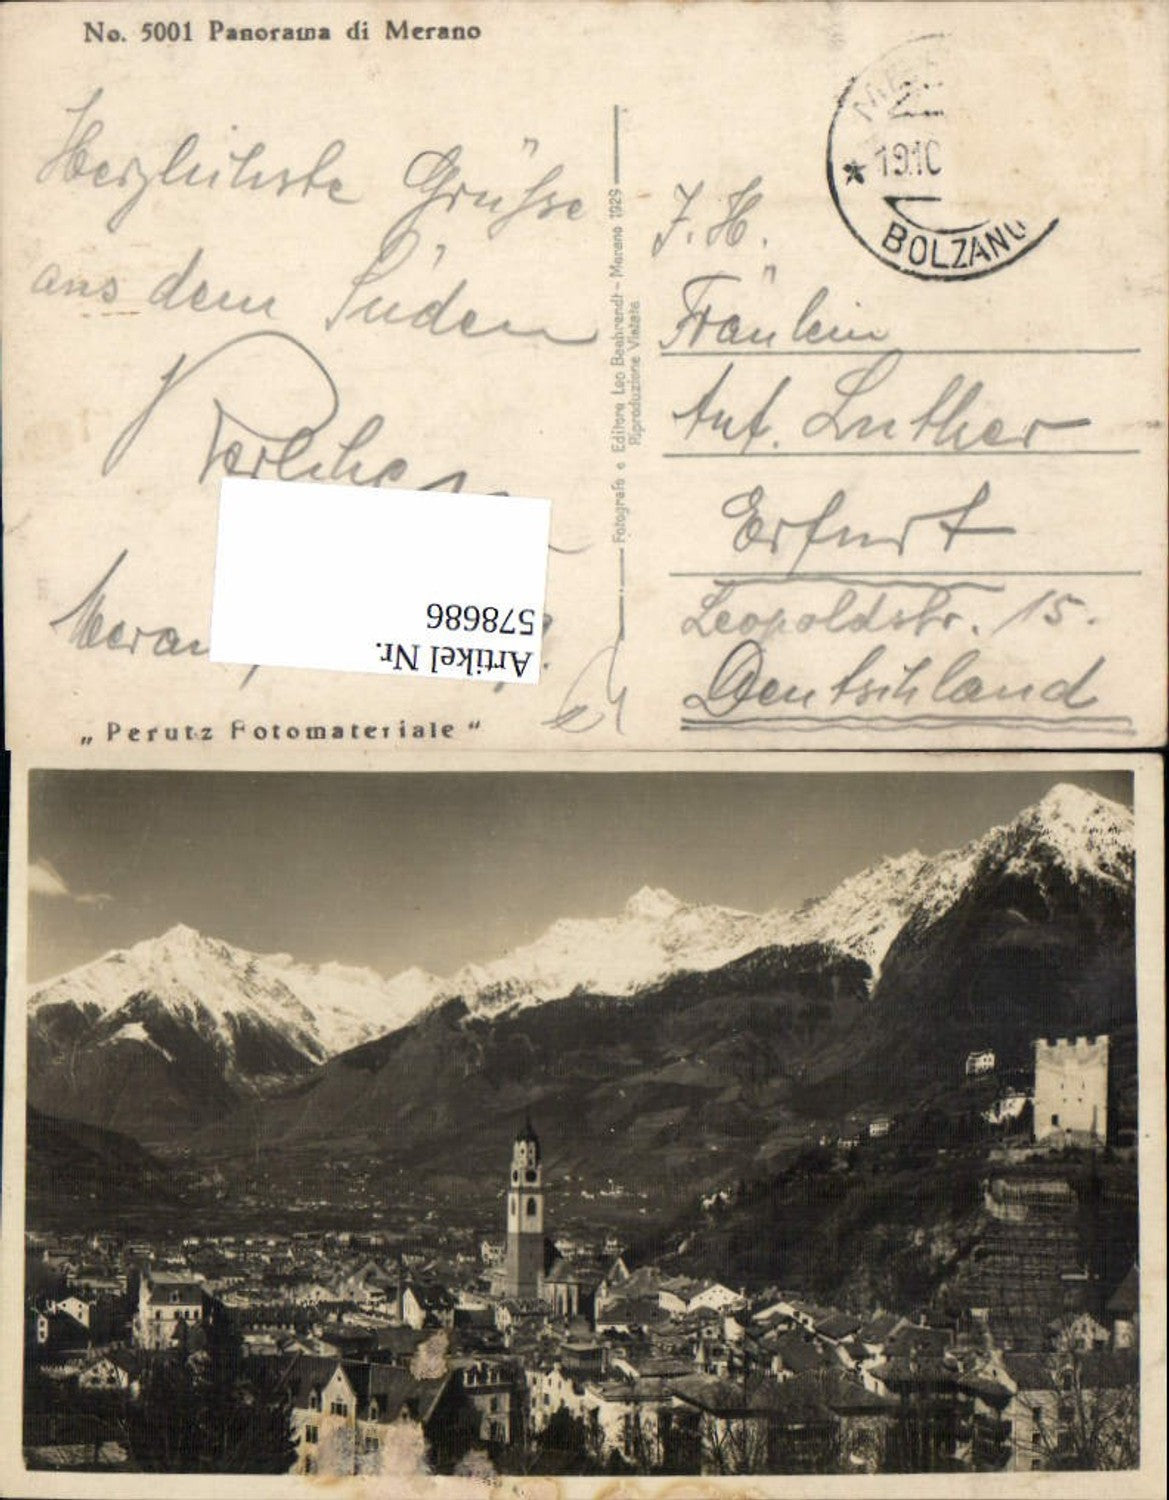 No. 5001 Panorama di Merano
Herzlichste Grüsse
aus dem Süden
Meran
„Perutz Fotomateriale“
Fotografo e Editore Leo Baehrendt - Merano 1929
Riproduzione Vietata
* 19.10
BOLZANO
F. H.
Fräulein
Ant. Luther
Erfurt
Leopoldstr. 15.
Deutschland
Artikel Nr.
578686